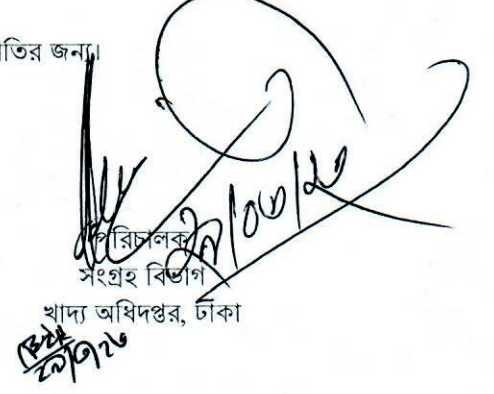 তির জন্য।
২৯/০৩/২৩
পরিচালক
সংগ্রহ বিভাগ
খাদ্য অধিদপ্তর, ঢাকা